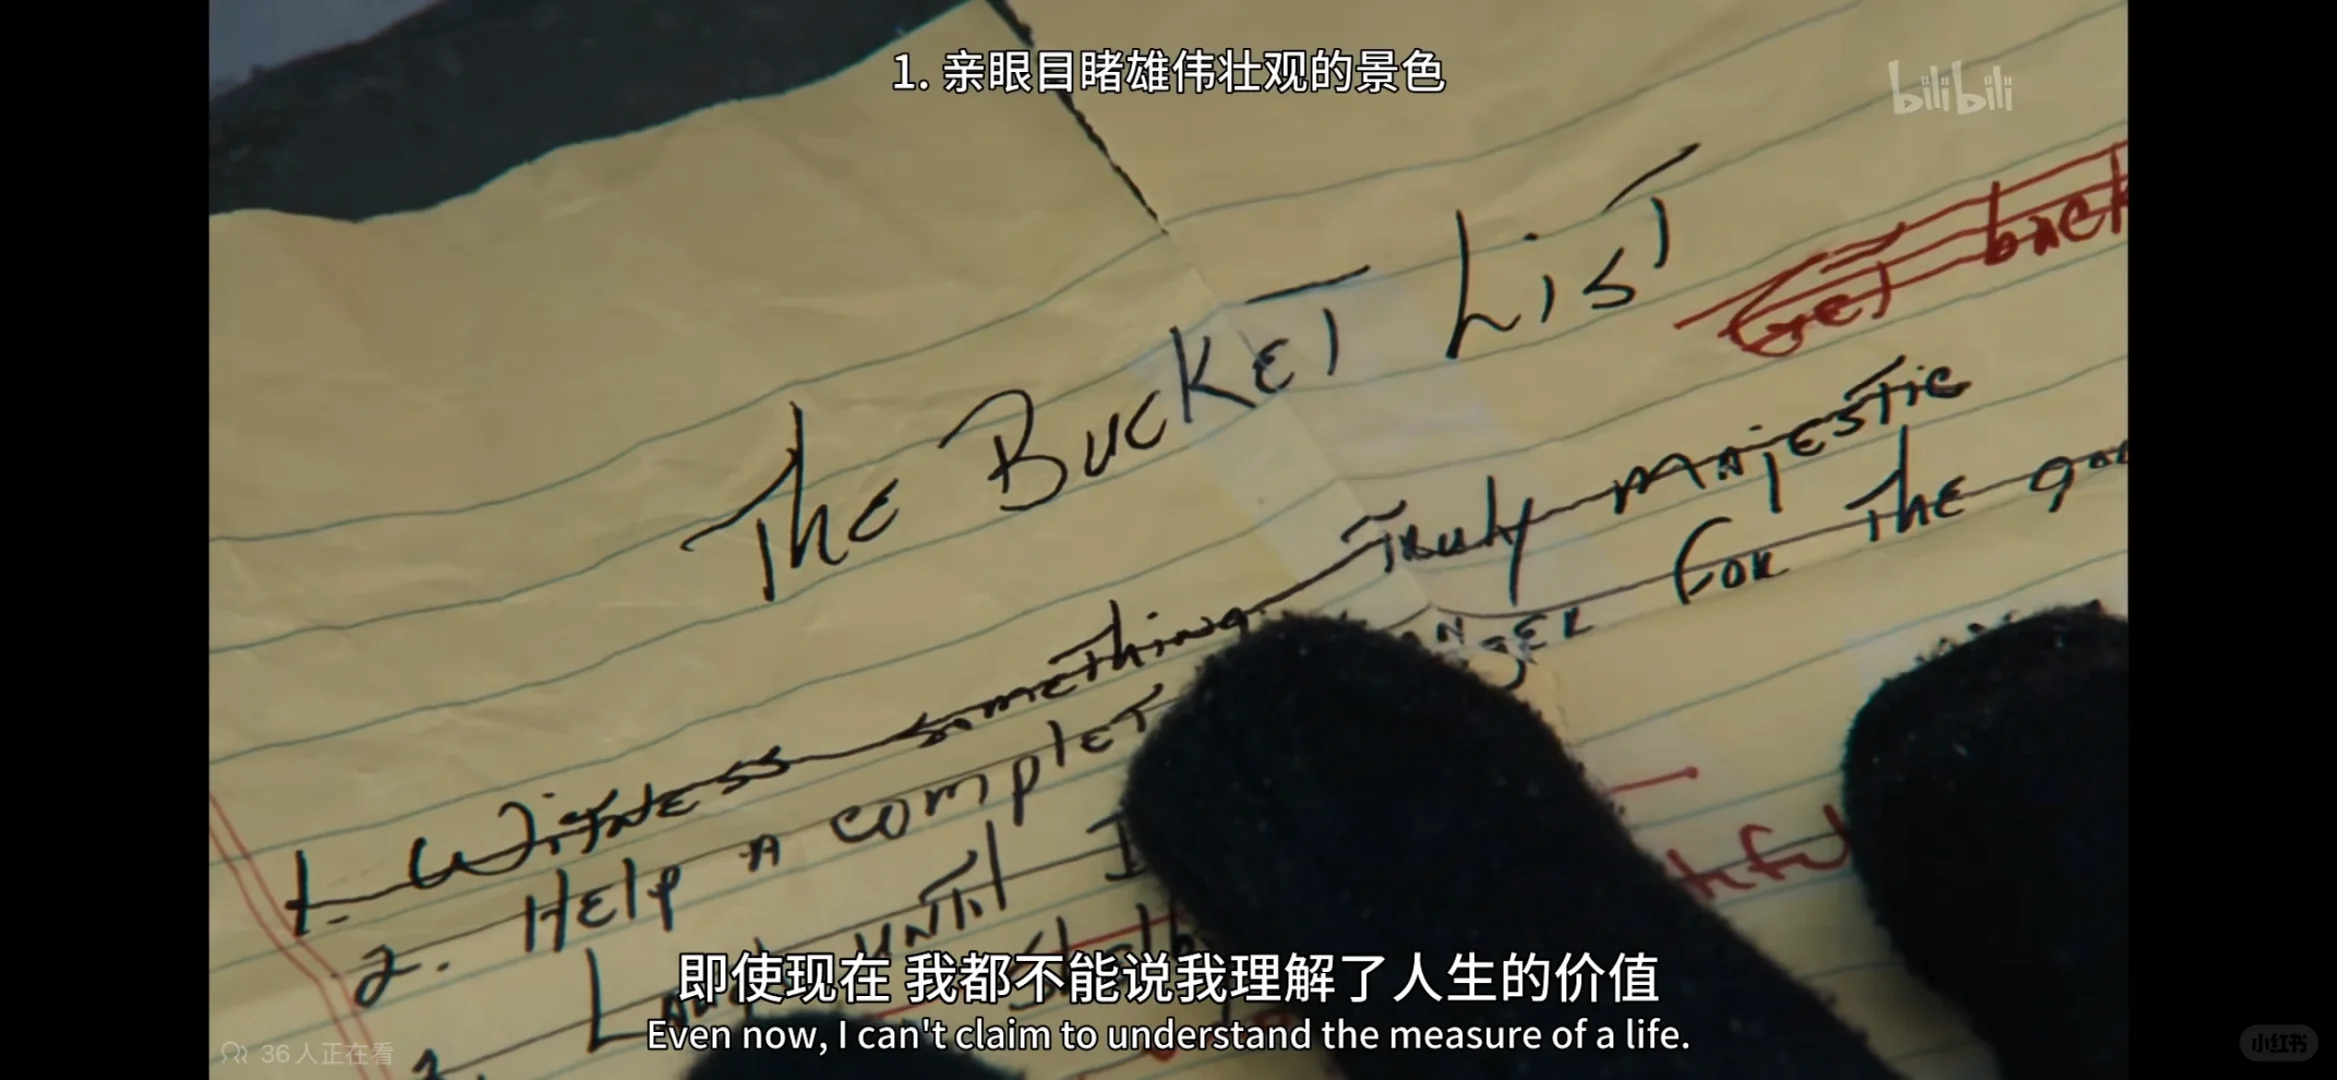 1. 亲眼目睹雄伟壮观的景色
bilibili
The Bucket List
Get back
1. Witness something truly majestic
2. Help a complet nger for the goo
Laugh until I
Shelby
即使现在 我都不能说我理解了人生的价值
Even now, I can't claim to understand the measure of a life.
36人正在看
小红书